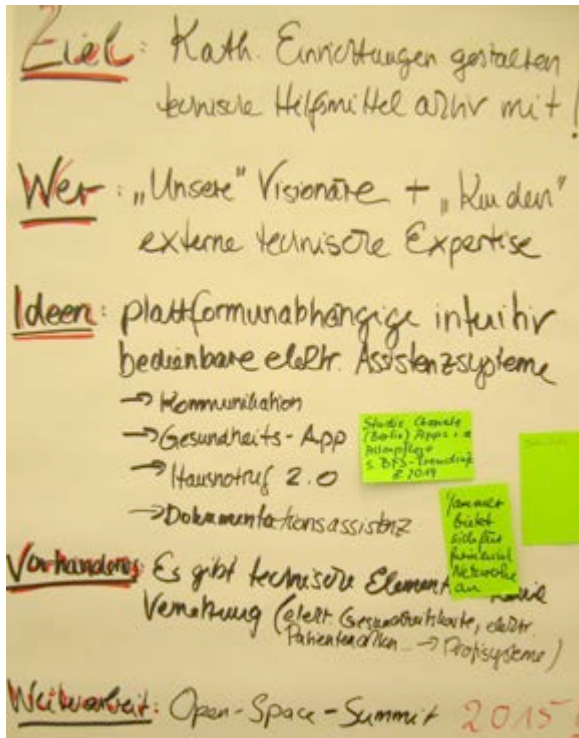 Ziel: Kath. Einrichtungen gestalten
technische Hilfsmittel aktiv mit!
Wer: „Unsere" Visionäre + „Kunden"
externe technische Expertise
Ideen: plattformunabhängige intuitiv
bedienbare elektr. Assistenzsysteme
→ Kommunikation
→ Gesundheits-App
→ Hausnotruf 2.0
→ Dokumentationsassistenz
Studie
(Berlin) Apps in
Altenpflege
bietet
sich für
Netzwerke
an
Vorhandenes: Es gibt technische Element
Vernetzung (elektr. Gesundheitskarte, elektr.
Patientenakten... → Profisysteme)
Weiterarbeit: Open-Space-Summit 2015!